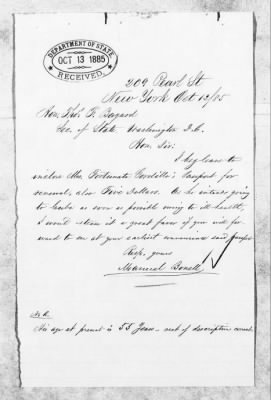 DEPARTMENT OF STATE
OCT 13 1885
RECEIVED.
209 Pearl St
New York Oct 12/85
Hon. Thos. F. Bayard
Sec. of State Washington D.C.
Hon. Sir:
I beg leave to
enclose Mr. Fortunato Gordillo's Passport for
renewal, also Five Dollars. As he intends going
to Cuba as soon as possible owing to ill health,
I would esteem it a great favor if you will for
ward to me at your earliest convenience said passport
Resp. yours
Manuel Bonell
N.B.
His age at present is 55 Years - rest of description correct.